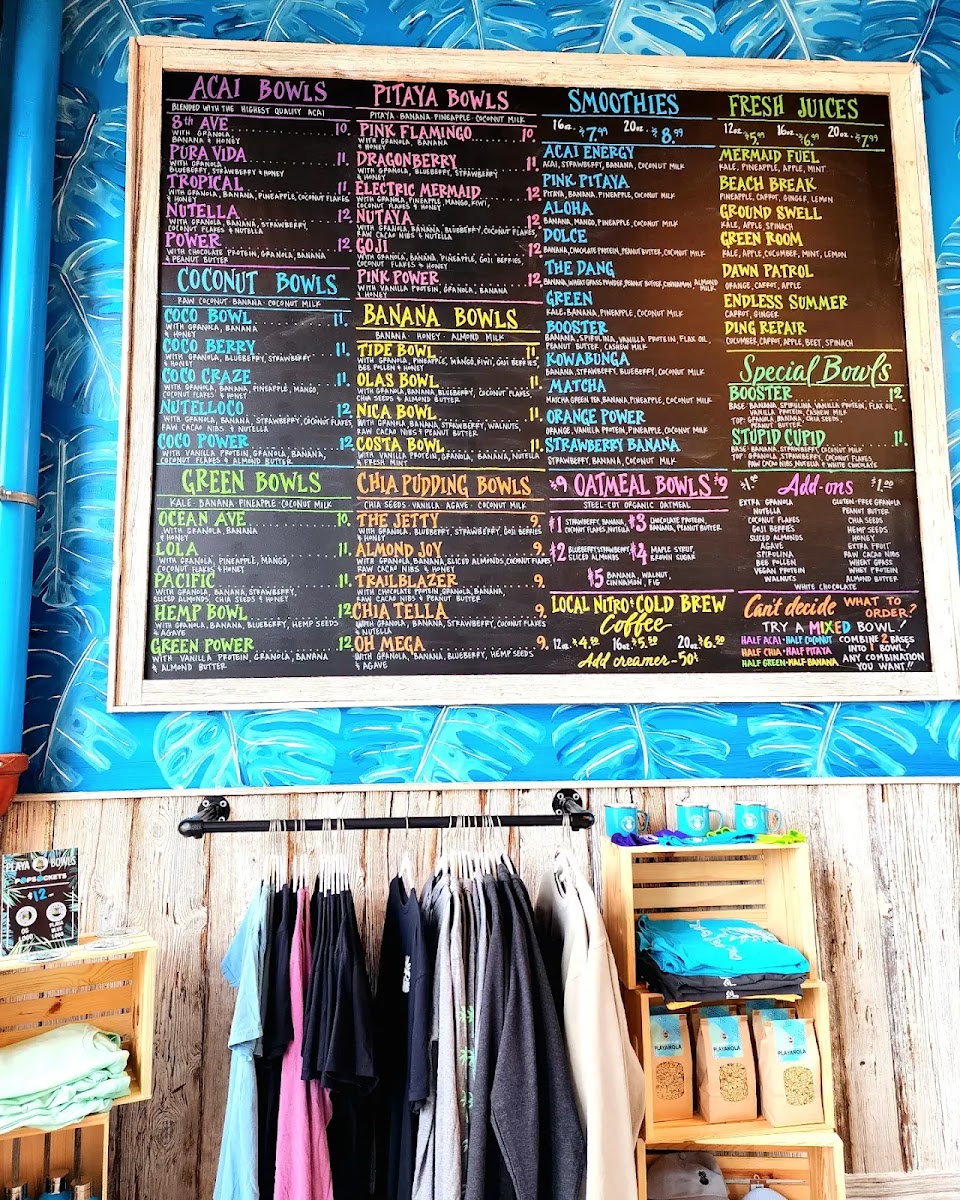 ACAI BOWLS
BLENDED WITH THE HIGHEST QUALITY ACAI
8th AVE 10.
WITH GRANOLA,
BANANA & HONEY
PURA VIDA 11.
WITH GRANOLA
BLUEBERRY, STRAWBERRY & HONEY
TROPICAL 11.
WITH GRANOLA, BANANA, PINEAPPLE, COCONUT FLAKES
& HONEY
NUTELLA 12
WITH GRANOLA, BANANA, STRAWBERRY,
COCONUT FLAKES & NUTELLA
POWER 12
WITH CHOCOLATE PROTEIN, GRANOLA, BANANA
& PEANUT BUTTER
COCONUT BOWLS
RAW COCONUT · BANANA · COCONUT MILK
COCO BOWL 11.
WITH GRANOLA, BANANA
& HONEY
COCO BERRY 11.
WITH GRANOLA, BLUEBERRY, STRAWBERRY
& HONEY
COCO CRAZE 11.
WITH GRANOLA, BANANA, PINEAPPLE, MANGO,
COCONUT FLAKES & HONEY
NUTELLOCO 12
WITH GRANOLA, BANANA, STRAWBERRY, COCONUT FLAKES,
RAW CACAO NIBS & NUTELLA
COCO POWER 12
WITH VANILLA PROTEIN, GRANOLA, BANANA,
COCONUT FLAKES & ALMOND BUTTER
GREEN BOWLS
KALE · BANANA · PINEAPPLE · COCONUT MILK
OCEAN AVE 10.
WITH GRANOLA, BANANA
& HONEY
LOLA 11.
WITH GRANOLA, PINEAPPLE, MANGO,
COCONUT FLAKES & HONEY
PACIFIC 11.
WITH GRANOLA, BANANA, STRAWBERRY,
SLICED ALMONDS, CHIA SEEDS & HONEY
HEMP BOWL 12
WITH GRANOLA, BANANA, BLUEBERRY, HEMP SEEDS
& AGAVE
GREEN POWER 12
WITH VANILLA PROTEIN, GRANOLA, BANANA
& ALMOND BUTTER
PITAYA BOWLS
PITAYA · BANANA · PINEAPPLE · COCONUT MILK
PINK FLAMINGO 10
WITH GRANOLA, BANANA
& HONEY
DRAGONBERRY 11.
WITH GRANOLA, BLUEBERRY, STRAWBERRY
& HONEY
ELECTRIC MERMAID 12
WITH GRANOLA, PINEAPPLE, MANGO, KIWI,
COCONUT FLAKES & HONEY
NUTAYA 12
WITH GRANOLA, BANANA, BLUEBERRY, COCONUT FLAKES,
RAW CACAO NIBS & NUTELLA
GOJI 12
WITH GRANOLA, BANANA, PINEAPPLE, GOJI BERRIES
COCONUT FLAKES & HONEY
PINK POWER 12
WITH VANILLA PROTEIN, GRANOLA, BANANA
& HONEY
BANANA BOWLS
BANANA · HONEY · ALMOND MILK
TIDE BOWL 11
WITH GRANOLA, PINEAPPLE, MANGO, KIWI, GOJI BERRIES
BEE POLLEN & HONEY
OLAS BOWL 11.
WITH GRANOLA, BANANA, BLUEBERRY, COCONUT FLAKES,
CHIA SEEDS & ALMOND BUTTER
NICA BOWL 11.
WITH GRANOLA, BANANA, STRAWBERRY, WALNUTS,
RAW CACAO NIBS & PEANUT BUTTER
COSTA BOWL 11.
WITH VANILLA PROTEIN, GRANOLA, BANANA, NUTELLA
& FRESH MINT
CHIA PUDDING BOWLS
CHIA SEEDS · VANILLA · AGAVE · COCONUT MILK
THE JETTY 9.
WITH GRANOLA, BLUEBERRY, STRAWBERRY, GOJI BERRIES
& HONEY
ALMOND JOY 9.
WITH GRANOLA, BANANA, SLICED ALMONDS, COCONUT FLAKES
RAW CACAO NIBS & HONEY
TRAILBLAZER 9.
WITH CHOCOLATE PROTEIN, GRANOLA, BANANA,
RAW CACAO NIBS & PEANUT BUTTER
CHIA TELLA 9.
WITH GRANOLA, BANANA, STRAWBERRY, COCONUT FLAKES
& NUTELLA
OH MEGA 9.
WITH GRANOLA, BANANA, BLUEBERRY, HEMP SEEDS
& AGAVE
SMOOTHIES
16oz. $7.99 20oz. $8.99
ACAI ENERGY
ACAI, STRAWBERRY, BANANA, COCONUT MILK
PINK PITAYA
PITAYA, BANANA, PINEAPPLE, COCONUT MILK
ALOHA
BANANA, MANGO, PINEAPPLE, COCONUT MILK
DOLCE
BANANA, CHOCOLATE PROTEIN, PEANUT BUTTER, COCONUT MILK
THE DANG
BANANA, WHEAT GRASS POWDER, PEANUT BUTTER, CINNAMON, ALMOND
MILK
GREEN
KALE, BANANA, PINEAPPLE, COCONUT MILK
BOOSTER
BANANA, SPIRULINA, VANILLA PROTEIN, FLAX OIL,
PEANUT BUTTER, CASHEW MILK
KOWABUNGA
BANANA, STRAWBERRY, BLUEBERRY, COCONUT MILK
MATCHA
MATCHA GREEN TEA, BANANA, PINEAPPLE, COCONUT MILK
ORANGE POWER
ORANGE, VANILLA PROTEIN, PINEAPPLE, COCONUT MILK
STRAWBERRY BANANA
STRAWBERRY, BANANA, COCONUT MILK
$9 OATMEAL BOWLS $9
STEEL-CUT ORGANIC OATMEAL
#1 STRAWBERRY, BANANA,
COCONUT FLAKES, NUTELLA
#3 CHOCOLATE PROTEIN,
BANANA, PEANUT BUTTER
#2 BLUEBERRY, STRAWBERRY
SLICED ALMONDS
#4 MAPLE SYRUP,
BROWN SUGAR
#5 BANANA, WALNUT,
CINNAMON, FIG
LOCAL NITRO COLD BREW
Coffee
12oz. $4.50 16oz. $5.50 20oz. $6.50
Add creamer - 50¢
FRESH JUICES
12oz. $5.99 16oz. $6.99 20oz. $7.99
MERMAID FUEL
KALE, PINEAPPLE, APPLE, MINT
BEACH BREAK
PINEAPPLE, CARROT, GINGER, LEMON
GROUND SWELL
KALE, APPLE, SPINACH
GREEN ROOM
KALE, APPLE, CUCUMBER, MINT, LEMON
DAWN PATROL
ORANGE, CARROT, APPLE
ENDLESS SUMMER
CARROT, GINGER
DING REPAIR
CUCUMBER, CARROT, APPLE, BEET, SPINACH
Special Bowls
BOOSTER 12.
BASE: BANANA, SPIRULINA, VANILLA PROTEIN, FLAX OIL,
VANILLA PROTEIN, CASHEW MILK
TOP: GRANOLA, BANANA, CHIA SEEDS
PEANUT BUTTER
STUPID CUPID 11.
BASE: BANANA, STRAWBERRY, COCONUT MILK
TOP: GRANOLA, STRAWBERRY, COCONUT FLAKES
RAW CACAO NIBS, NUTELLA & WHITE CHOCOLATE
$1.00 Add-ons $1.00
EXTRA GRANOLA
NUTELLA
COCONUT FLAKES
GOJI BERRIES
SLICED ALMONDS
AGAVE
SPIRULINA
BEE POLLEN
VEGAN PROTEIN
WALNUTS
GLUTEN-FREE GRANOLA
PEANUT BUTTER
CHIA SEEDS
HEMP SEEDS
HONEY
EXTRA FRUIT
RAW CACAO NIBS
WHEAT GRASS
WHEY PROTEIN
ALMOND BUTTER
WHITE CHOCOLATE
Can't decide WHAT TO
ORDER?
TRY A MIXED BOWL!
HALF ACAI · HALF COCONUT
HALF CHIA · HALF PITAYA
HALF GREEN · HALF BANANA
COMBINE 2 BASES
INTO 1 BOWL!
ANY COMBINATION
YOU WANT!!
PLAYA BOWLS
POPSOCKETS
$12
OG
LOGO
PLAYA
BLUE
LOGO
PLAYANOLA
PLAYANOLA
PLAYANOLA